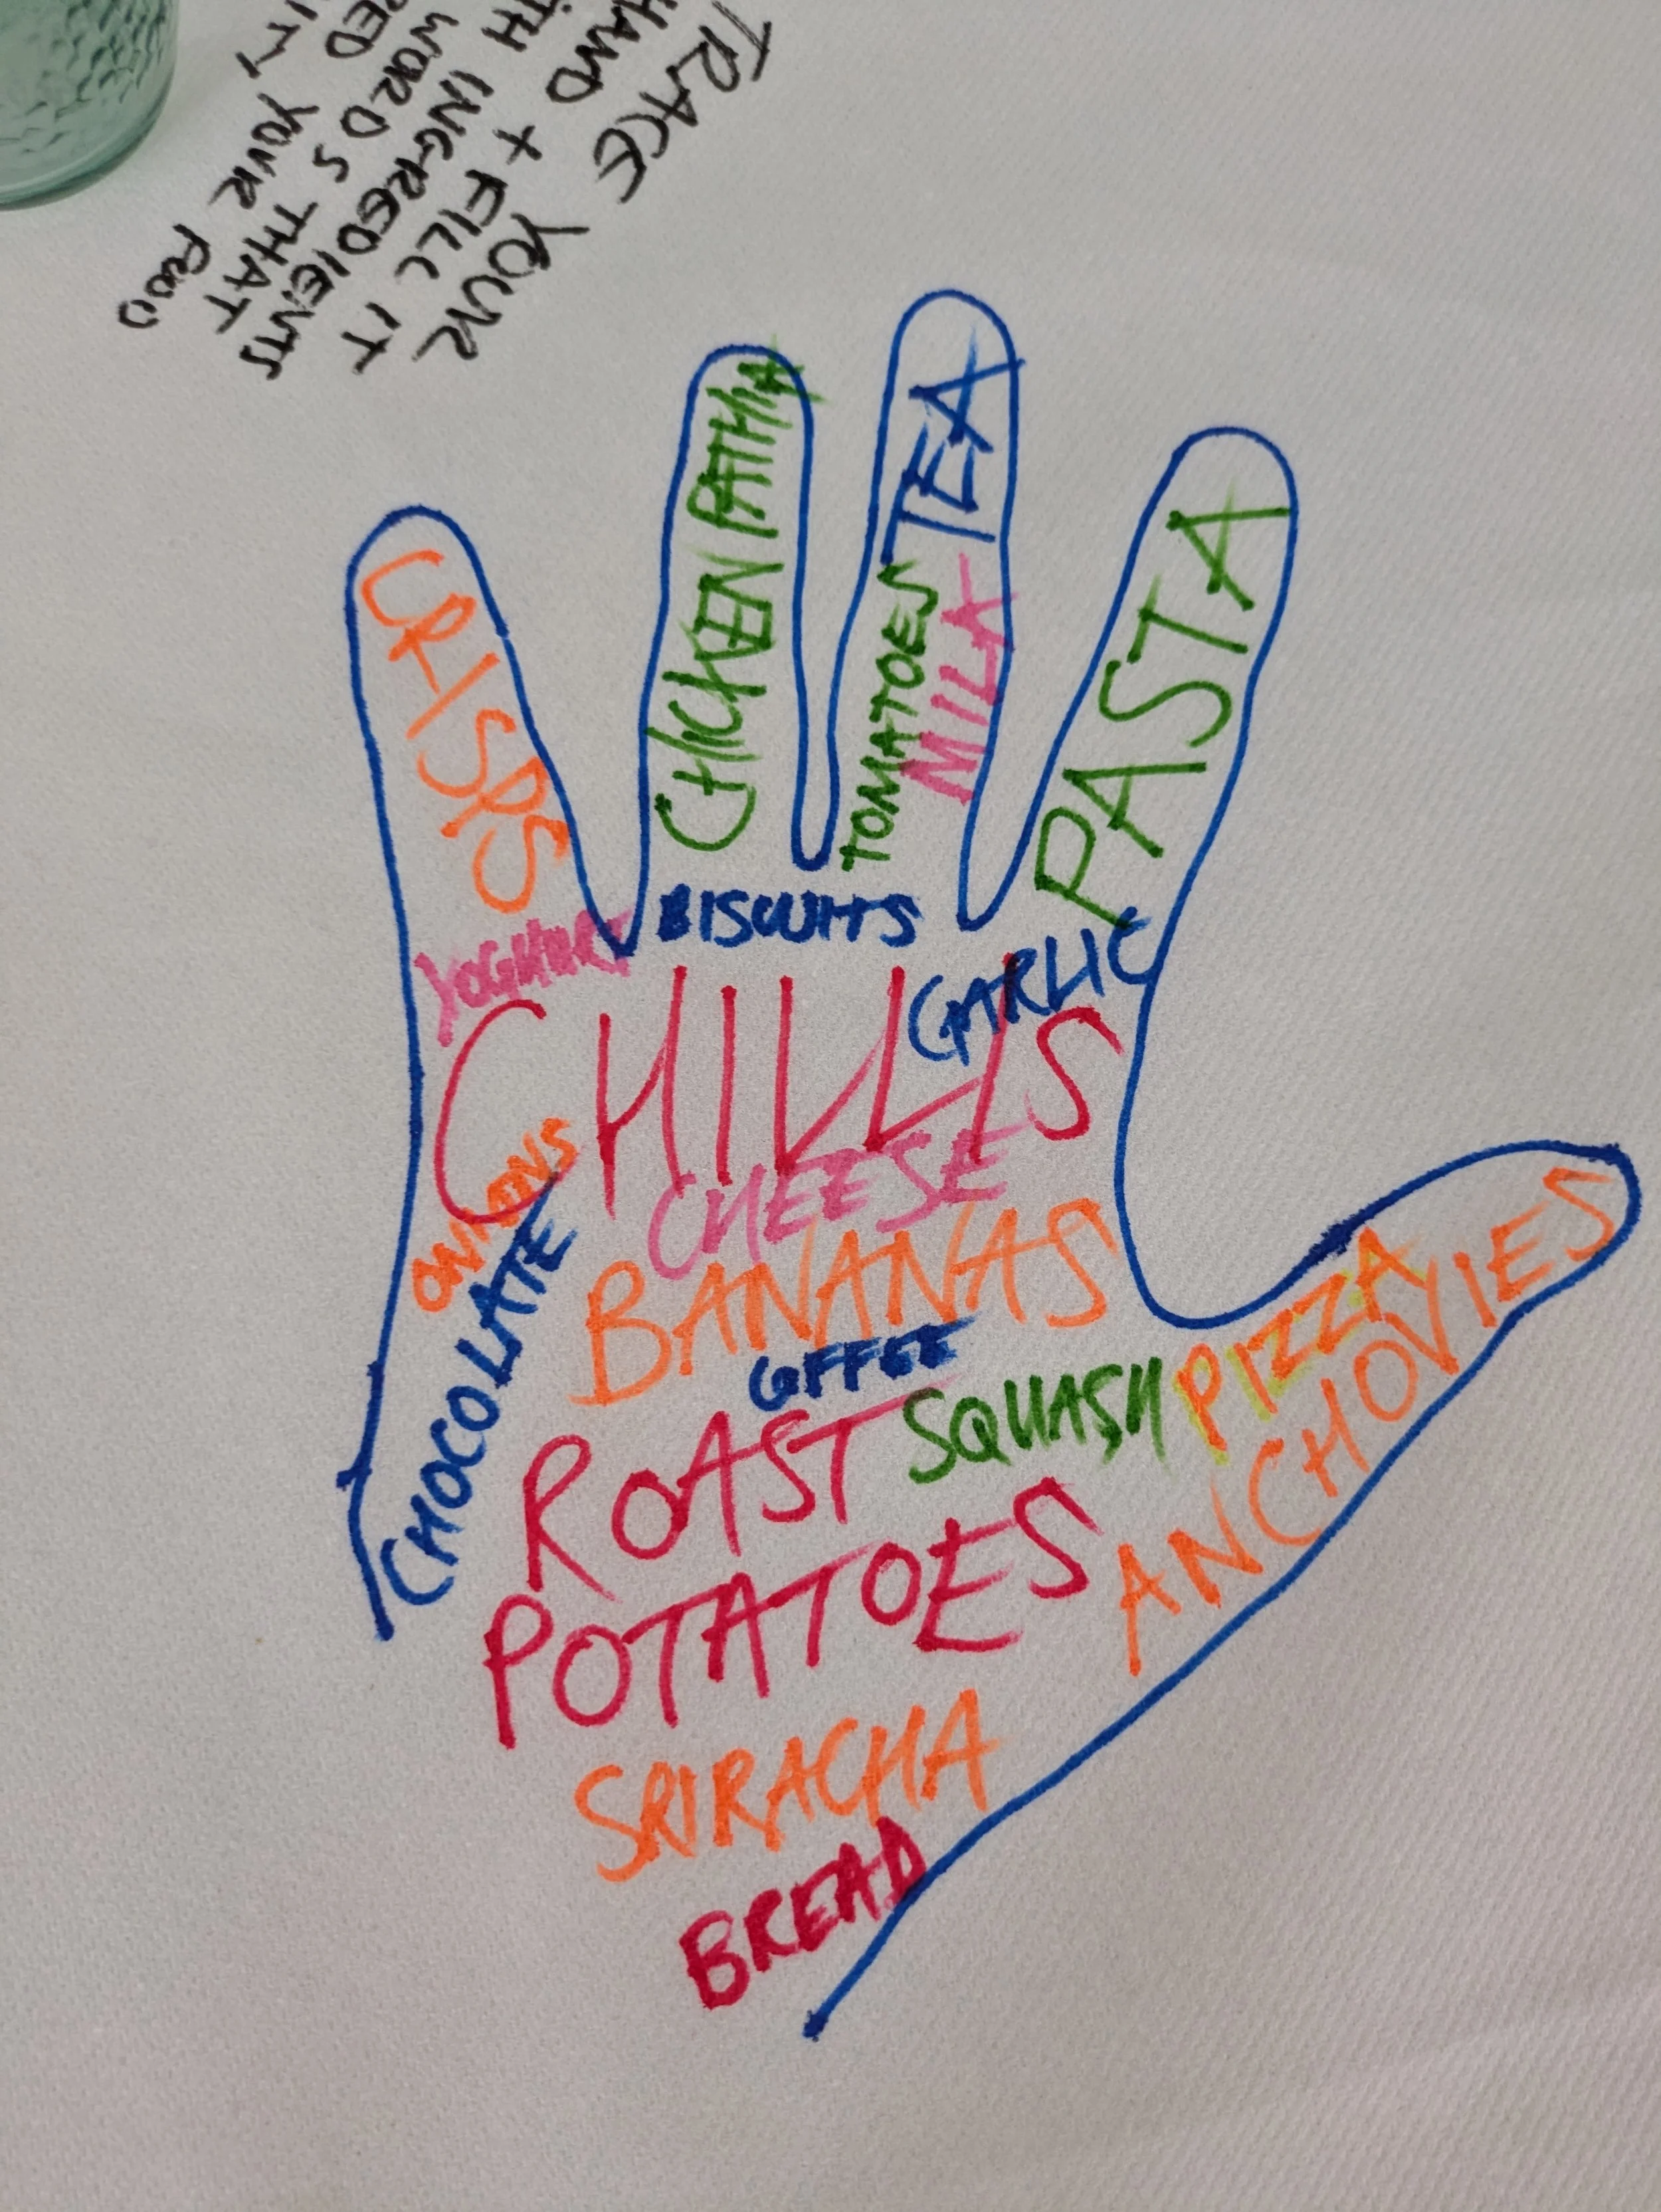 TRACE YOUR
HAND + FILL IT
INGREDIENTS
WORDS THAT
YOUR FOOD
CRISPS
CHICKEN PATHIA
TEA
TOMATOES
MILK
PASTA
YOGHURT
BISCUITS
GARLIC
CHILLIS
ONIONS
CHEESE
CHOCOLATE
BANANAS
COFFEE
SQUASH
PIZZA
ANCHOVIES
ROAST
POTATOES
SRIRACHA
BREAD